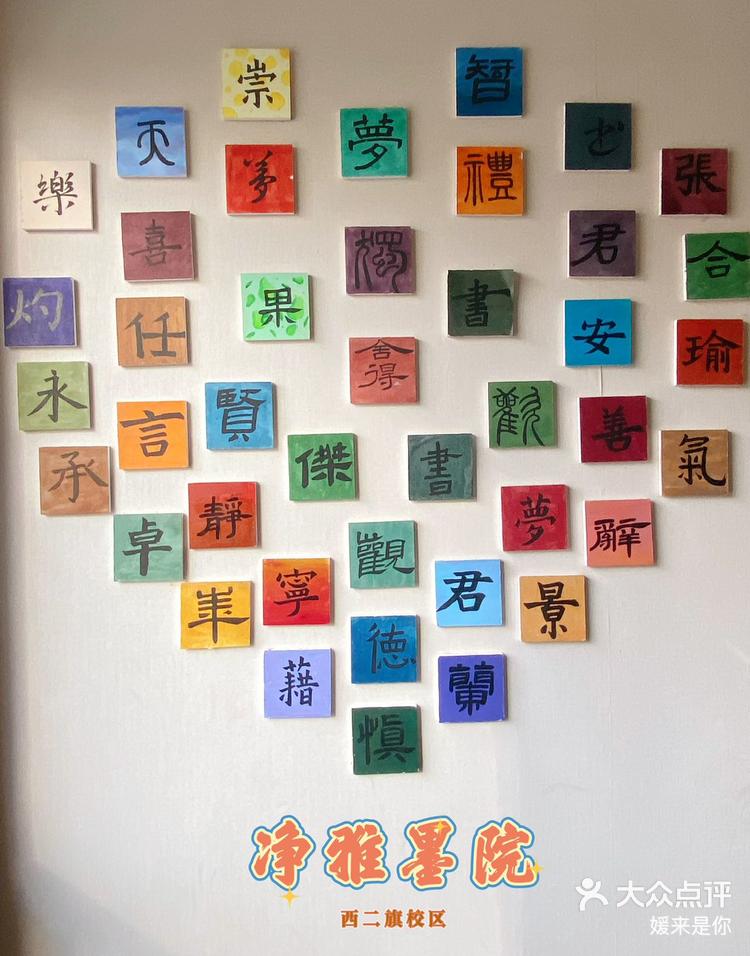 崇
智
天
夢
樂
禮
張
喜
君
合
獨
灼
果
書
任
安
瑜
舍得
永
賢
觀
善
言
傑
書
氣
承
靜
夢
辭
卓
觀
寧
君
景
年
德
藉
蘭
慎
净雅墨院
西二旗校区
大众点评
媛来是你